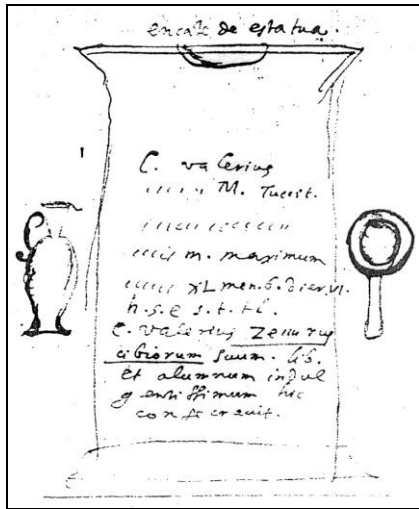 de estatua.
C. Valerius
M. Tuccit.
m. maximum
XL men. 6. dier. VI.
h. s. e s. t. tl.
C. Valerius
cibiorum suum. lib.
et alumnum indul
gentissimum hic
consecravit.